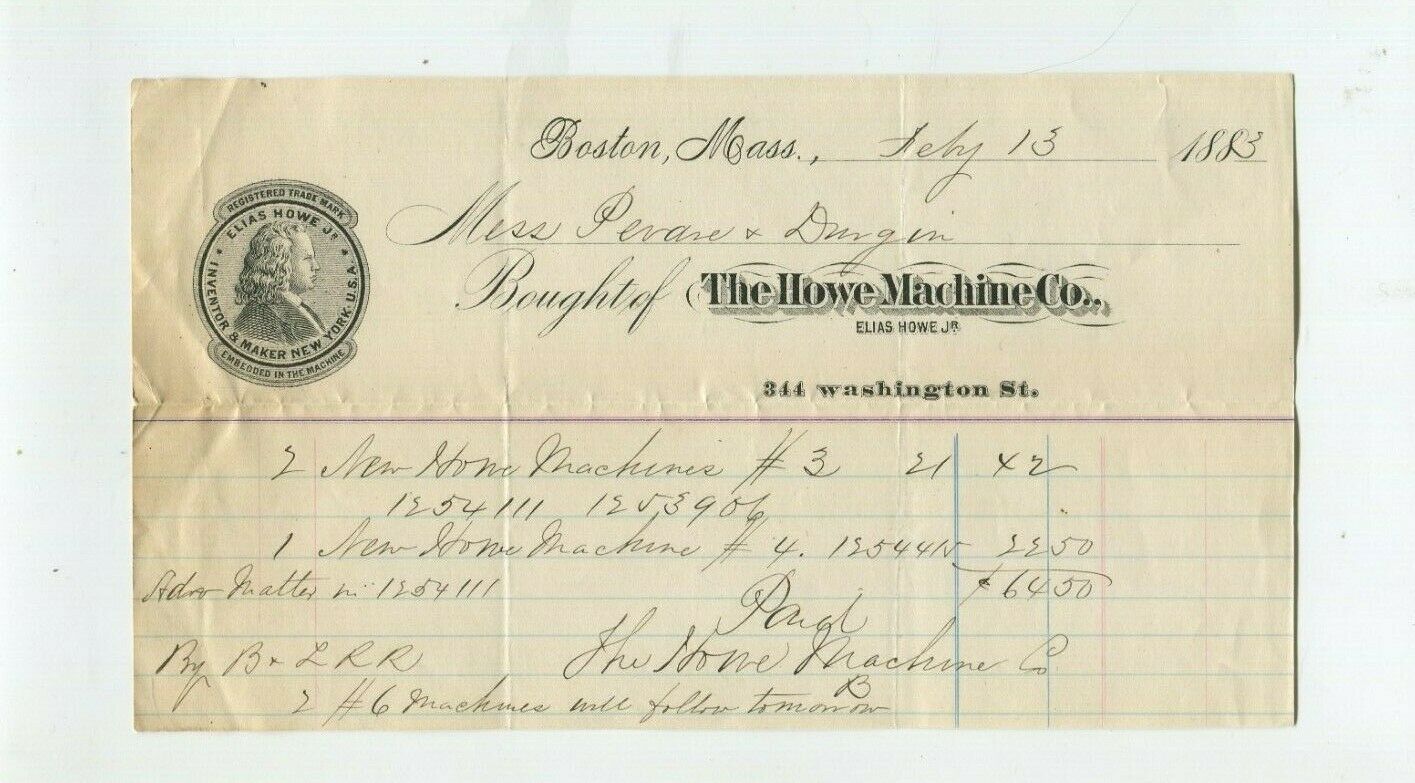 Boston, Mass., Feby 13 1883
REGISTERED TRADE MARK
ELIAS HOWE JR
INVENTOR & MAKER NEW YORK. U.S.A.
EMBEDDED IN THE MACHINE
Mess Pevare & Durgin
Bought of The Howe Machine Co.,
ELIAS HOWE JR.
344 washington St.
2 New Howe Machines # 3 21 42
1254111 1253906
1 New Howe Machine # 4. 1254415 22 50
Adv Matter in 1254111 $ 64 50
Paid
By B & L R R The Howe Machine Co
B
2 #6 Machines will follow tomorrow